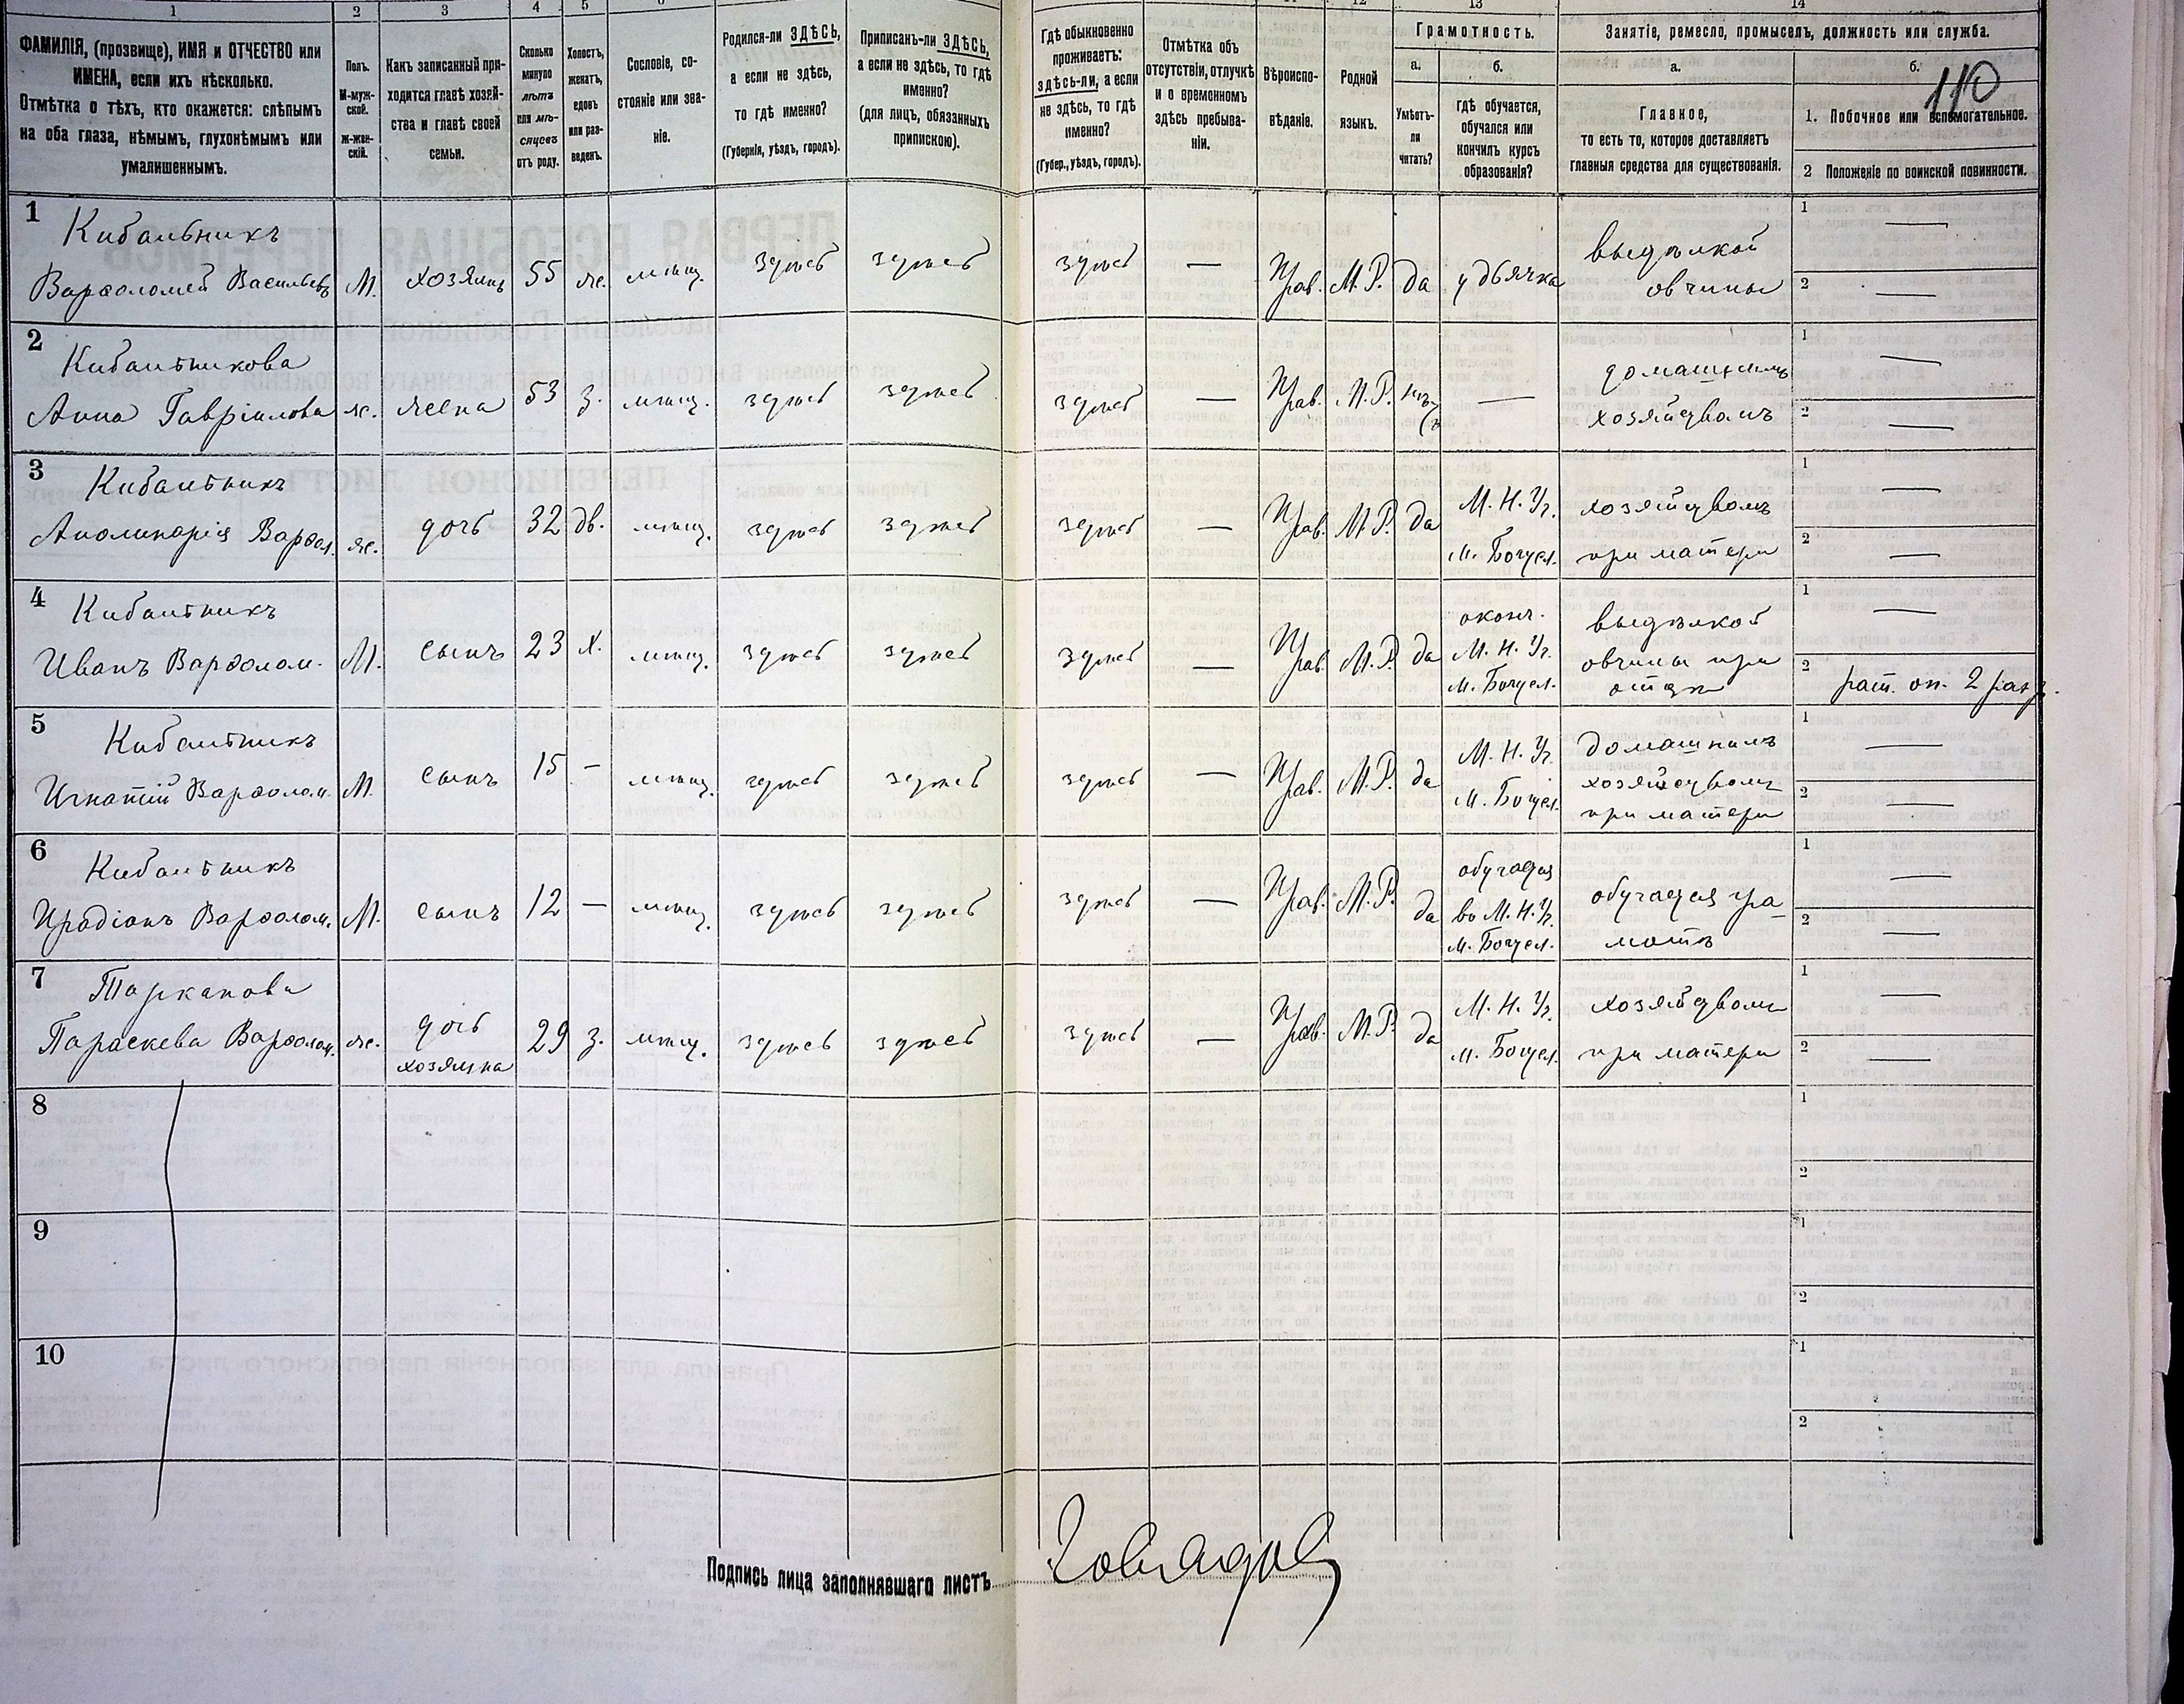 1 2 3 4 5 13 14
ФАМИЛІЯ, (прозвище), ИМЯ и ОТЧЕСТВО или
ИМЕНА, если ихъ нѣсколько.
Отмѣтка о тѣхъ, кто окажется: слѣпымъ
на оба глаза, нѣмымъ, глухонѣмымъ или
умалишеннымъ.
Полъ.
М-муж-
ской.
ж-жен-
скій.
Какъ записанный при-
ходится главѣ хозяй-
ства и главѣ своей
семьи.
Сколько
минуло
лѣтъ
или мѣ-
сяцевъ
отъ роду.
Холостъ,
женатъ,
вдовъ
или раз-
веденъ.
Сословіе, со-
стояніе или зва-
ніе.
Родился-ли ЗДѢСЬ,
а если не здѣсь,
то гдѣ именно?
(Губернія, уѣздъ, городъ).
Приписанъ-ли ЗДѢСЬ,
а если не здѣсь, то гдѣ
именно?
(для лицъ, обязанныхъ
припискою).
Гдѣ обыкновенно
проживаетъ:
здѣсь-ли, а если
не здѣсь, то гдѣ
именно?
(Губер., уѣздъ, городъ).
Отмѣтка объ
отсутствіи, отлучкѣ
и о временномъ
здѣсь пребыва-
ніи.
Вѣроиспо-
вѣданіе.
Родной
языкъ.
Грамотность.
а.
Умѣетъ-
ли
читать?
б.
гдѣ обучается,
обучался или
кончилъ курсъ
образованія?
Занятіе, ремесло, промыселъ, должность или служба.
а.
Главное,
то есть то, которое доставляетъ
главныя средства для существованія.
б.
110
1. Побочное или вспомогательное.
2 Положеніе по воинской повинности.
1 Кибальникъ
Варѳоломей Васильевъ М. хозяинъ 55 ж. мѣщ. здѣсь здѣсь здѣсь — Прав. М.Р. да у дьячка
выдѣлкой
овчины
1 —
2 —
2 Кибальникова
Анна Гавріилова ж. жена 53 з. мѣщ. здѣсь здѣсь здѣсь — Прав. М.Р. нѣтъ —
домашнимъ
хозяйствомъ
1 —
2 —
3 Кибальникъ
Аполинарія Варѳол. ж. дочь 32 дв. мѣщ. здѣсь здѣсь здѣсь — Прав. М.Р. да
М. Н. Уч.
м. Богусл.
хозяйствомъ
при матери
1 —
2 —
4 Кибальникъ
Иванъ Варѳолом. М. сынъ 23 х. мѣщ. здѣсь здѣсь здѣсь — Прав. М.Р. да
оконч.
М. Н. Уч.
м. Богусл.
выдѣлкой
овчины при
отцѣ
1 —
2 рат. оп. 2 разр.
5 Кибальникъ
Игнатій Варѳолом. М. сынъ 15 — мѣщ. здѣсь здѣсь здѣсь — Прав. М.Р. да
М. Н. Уч.
м. Богусл.
домашнимъ
хозяйствомъ
при матери
1 —
2 —
6 Кибальникъ
Иродіонъ Варѳолом. М. сынъ 12 — мѣщ. здѣсь здѣсь здѣсь — Прав. М.Р. да
обучается
во М. Н. Уч.
м. Богусл.
обучается гра-
мотѣ
1 —
2 —
7 Тарканова
Параскева Варѳолом. ж. дочь
хозяина
29 з. мѣщ. здѣсь здѣсь здѣсь — Прав. М.Р. да
М. Н. Уч.
м. Богусл.
хозяйствомъ
при матери
1 —
2 —
8 1
2
9 1
2
10 1
2
Подпись лица заполнявшаго листъ